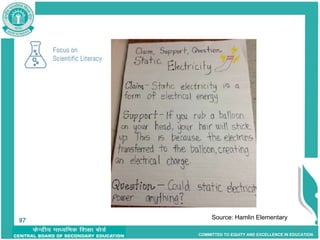 Focus on
Scientific Literacy
Claim, Support, Question
Static
Electricity
Claim - Static electricity is a
form of electrical energy
Support - If you rub a balloon
on your head, your hair will stick
up. This is because the electrons
transferred to the balloon, creating
an electrical charge.
Question - Could static electricity
power anything?
Source: Hamlin Elementary
97
केन्द्रीय माध्यमिक शिक्षा बोर्ड
CENTRAL BOARD OF SECONDARY EDUCATION
COMMITTED TO EQUITY AND EXCELLENCE IN EDUCATION